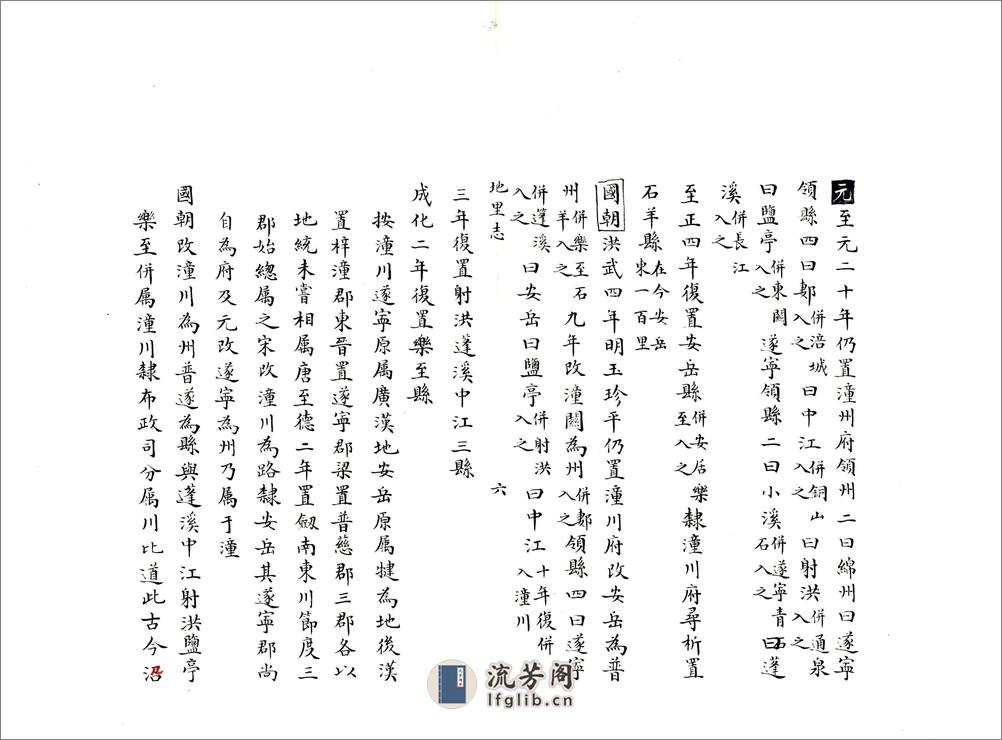 元至元二十年仍置潼州府領州二曰綿州曰遂寧
領縣四曰郪併涪城入之曰中江併銅山入之曰射洪併通泉入之
曰鹽亭併東關入之遂寧領縣二曰小溪併遂寧青石入之曰蓬
溪併長江入之
至正四年復置安岳縣併安居樂至入之隸潼川府尋析置
石羊縣在今安岳東一百里
國朝洪武四年明玉珍平仍置潼川府改安岳為普
州併樂至石羊入之九年改潼關為州併郪入之領縣四曰遂寧
併蓬溪入之曰安岳曰鹽亭併射洪入之曰中江十年復併入潼川
地里志 六
三年復置射洪蓬溪中江三縣
成化二年復置樂至縣
按潼川遂寧原属廣漢地安岳原属犍為地後漢
置梓潼郡東晉置遂寧郡梁置普慈郡三郡各以
地統未嘗相属唐至德二年置劔南東川節度三
郡始總属之宋改潼川為路隸安岳其遂寧郡尚
自為府及元改遂寧為州乃属于潼
國朝改潼川為州普遂為縣與蓬溪中江射洪鹽亭
樂至併属潼川隸布政司分属川北道此古今沿
流芳阁
lfglib.cn